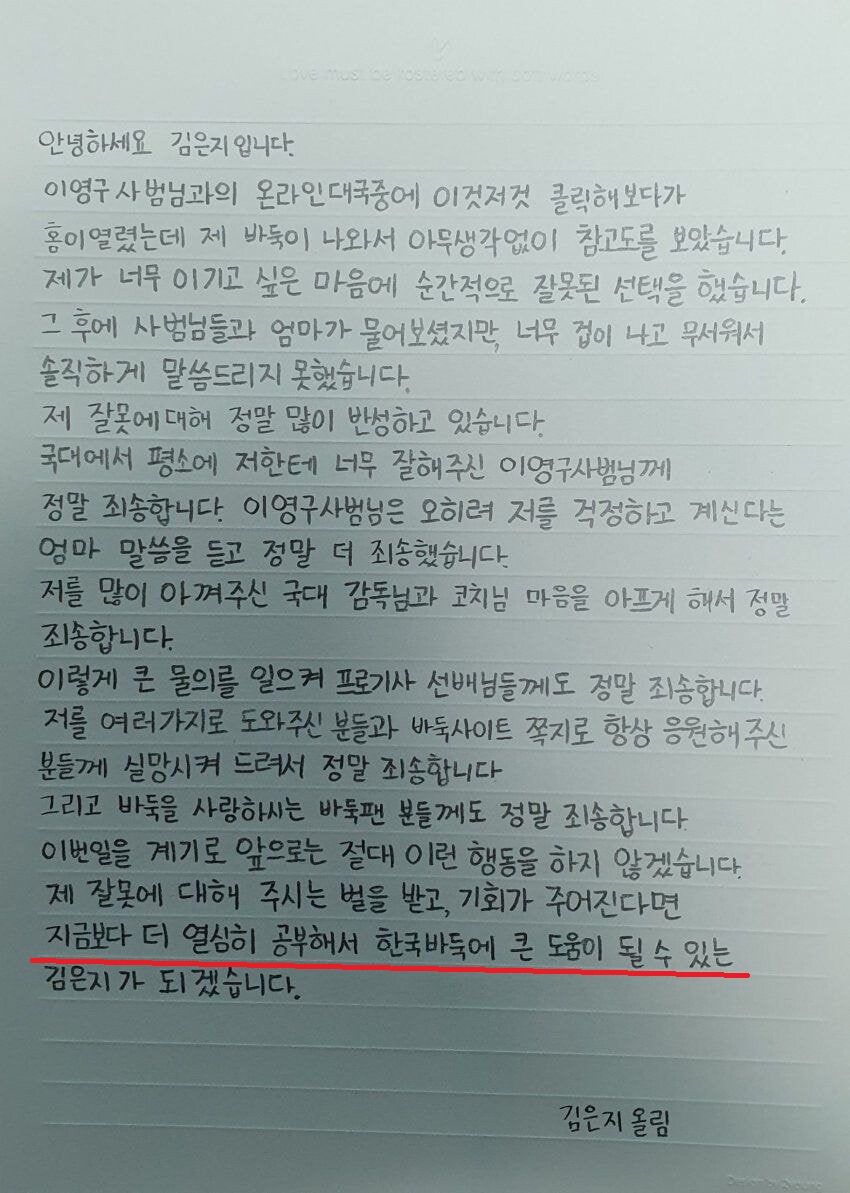 Love must be fostered with soft words
안녕하세요 김은지입니다.
이영구 사범님과의 온라인대국중에 이것저것 클릭해보다가
홈이열렸는데 제 바둑이 나와서 아무생각없이 참고도를 보았습니다.
제가 너무 이기고 싶은 마음에 순간적으로 잘못된 선택을 했습니다.
그 후에 사범님들과 엄마가 물어보셨지만, 너무 겁이 나고 무서워서
솔직하게 말씀드리지 못했습니다.
제 잘못에대해 정말 많이 반성하고 있습니다.
국대에서 평소에 저한테 너무 잘해주신 이영구사범님께
정말 죄송합니다. 이영구사범님은 오히려 저를 걱정하고 계신다는
엄마 말씀을 듣고 정말 더 죄송했습니다.
저를 많이 아껴주신 국대 감독님과 코치님 마음을 아프게 해서 정말
죄송합니다.
이렇게 큰 물의를 일으켜 프로기사 선배님들께도 정말 죄송합니다.
저를 여러가지로 도와주신 분들과 바둑사이트 쪽지로 항상 응원해주신
분들께 실망시켜 드려서 정말 죄송합니다
그리고 바둑을 사랑하시는 바둑팬 분들께도 정말 죄송합니다.
이번일을 계기로 앞으로는 절대 이런 행동을 하지 않겠습니다.
제 잘못에 대해 주시는 벌을 받고, 기회가 주어진다면
지금보다 더 열심히 공부해서 한국바둑에 큰 도움이 될 수 있는
김은지가 되겠습니다.
김은지 올림